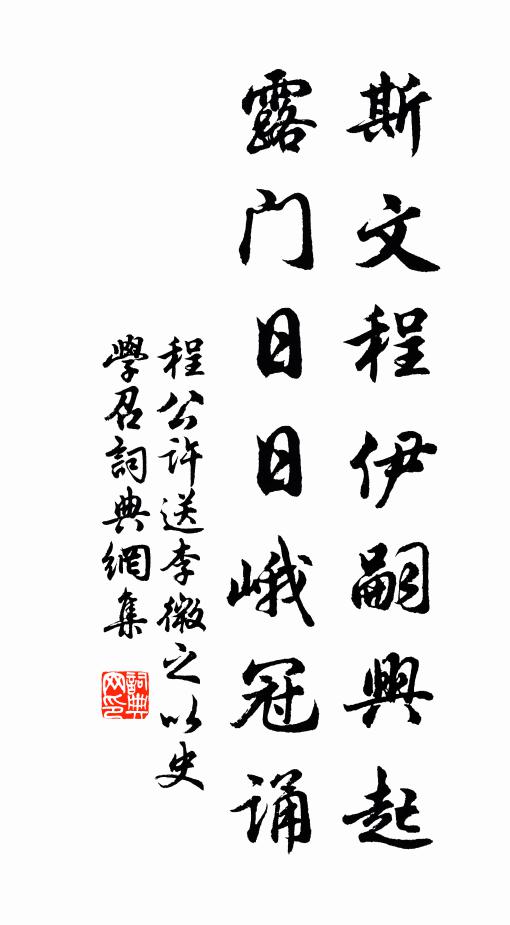 斯文程伊嗣興起
露门日日峨冠诵
程公许送李微之以史
學召詞典網集
詞典网印